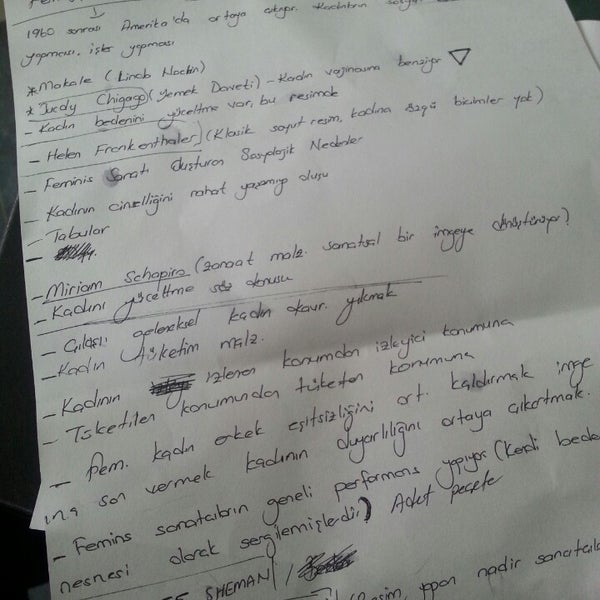 1960 sonrası Amerika'da ortaya çıkıyor. Kadınların
yapması, işler yapması
* Makale (Linda Nochlin)
* Judy Chigago (Yemek Daveti) - Kadın vajinasına benziyor
- Kadın bedenini yüceltme var, bu resimde
- Helen Frankenthaler (Klasik soyut resim, kadına özgü biçimler yok)
- Feminis Sanatı Oluşturan Sosyolojik Nedenler
- Kadının cinselliğini rahat yaşamıyo oluşu
- Tabular
-
- Miriam Schapiro (zanaat malz. sanatsal bir imgeye dönüştürüyor?
- Kadını yüceltme söz konusu
- geleneksel kadın yıkmak
- Kadın tüketim malz.
- Kadının izlenen konumdan izleyici konumuna
- Tüketilen konumundan tüketen konumuna
- Fem. kadın erkek eşitsizliğini ort. kaldırmak imge
son vermek kadının duyarlılığını ortaya çıkartmak.
- Femins sanatcıların geneli performans yapıyor (Kendi bede
nesnesi olarak sergilemişlerdir) Adet pecete
SHEMAN /
yapan nadir sanatcıla